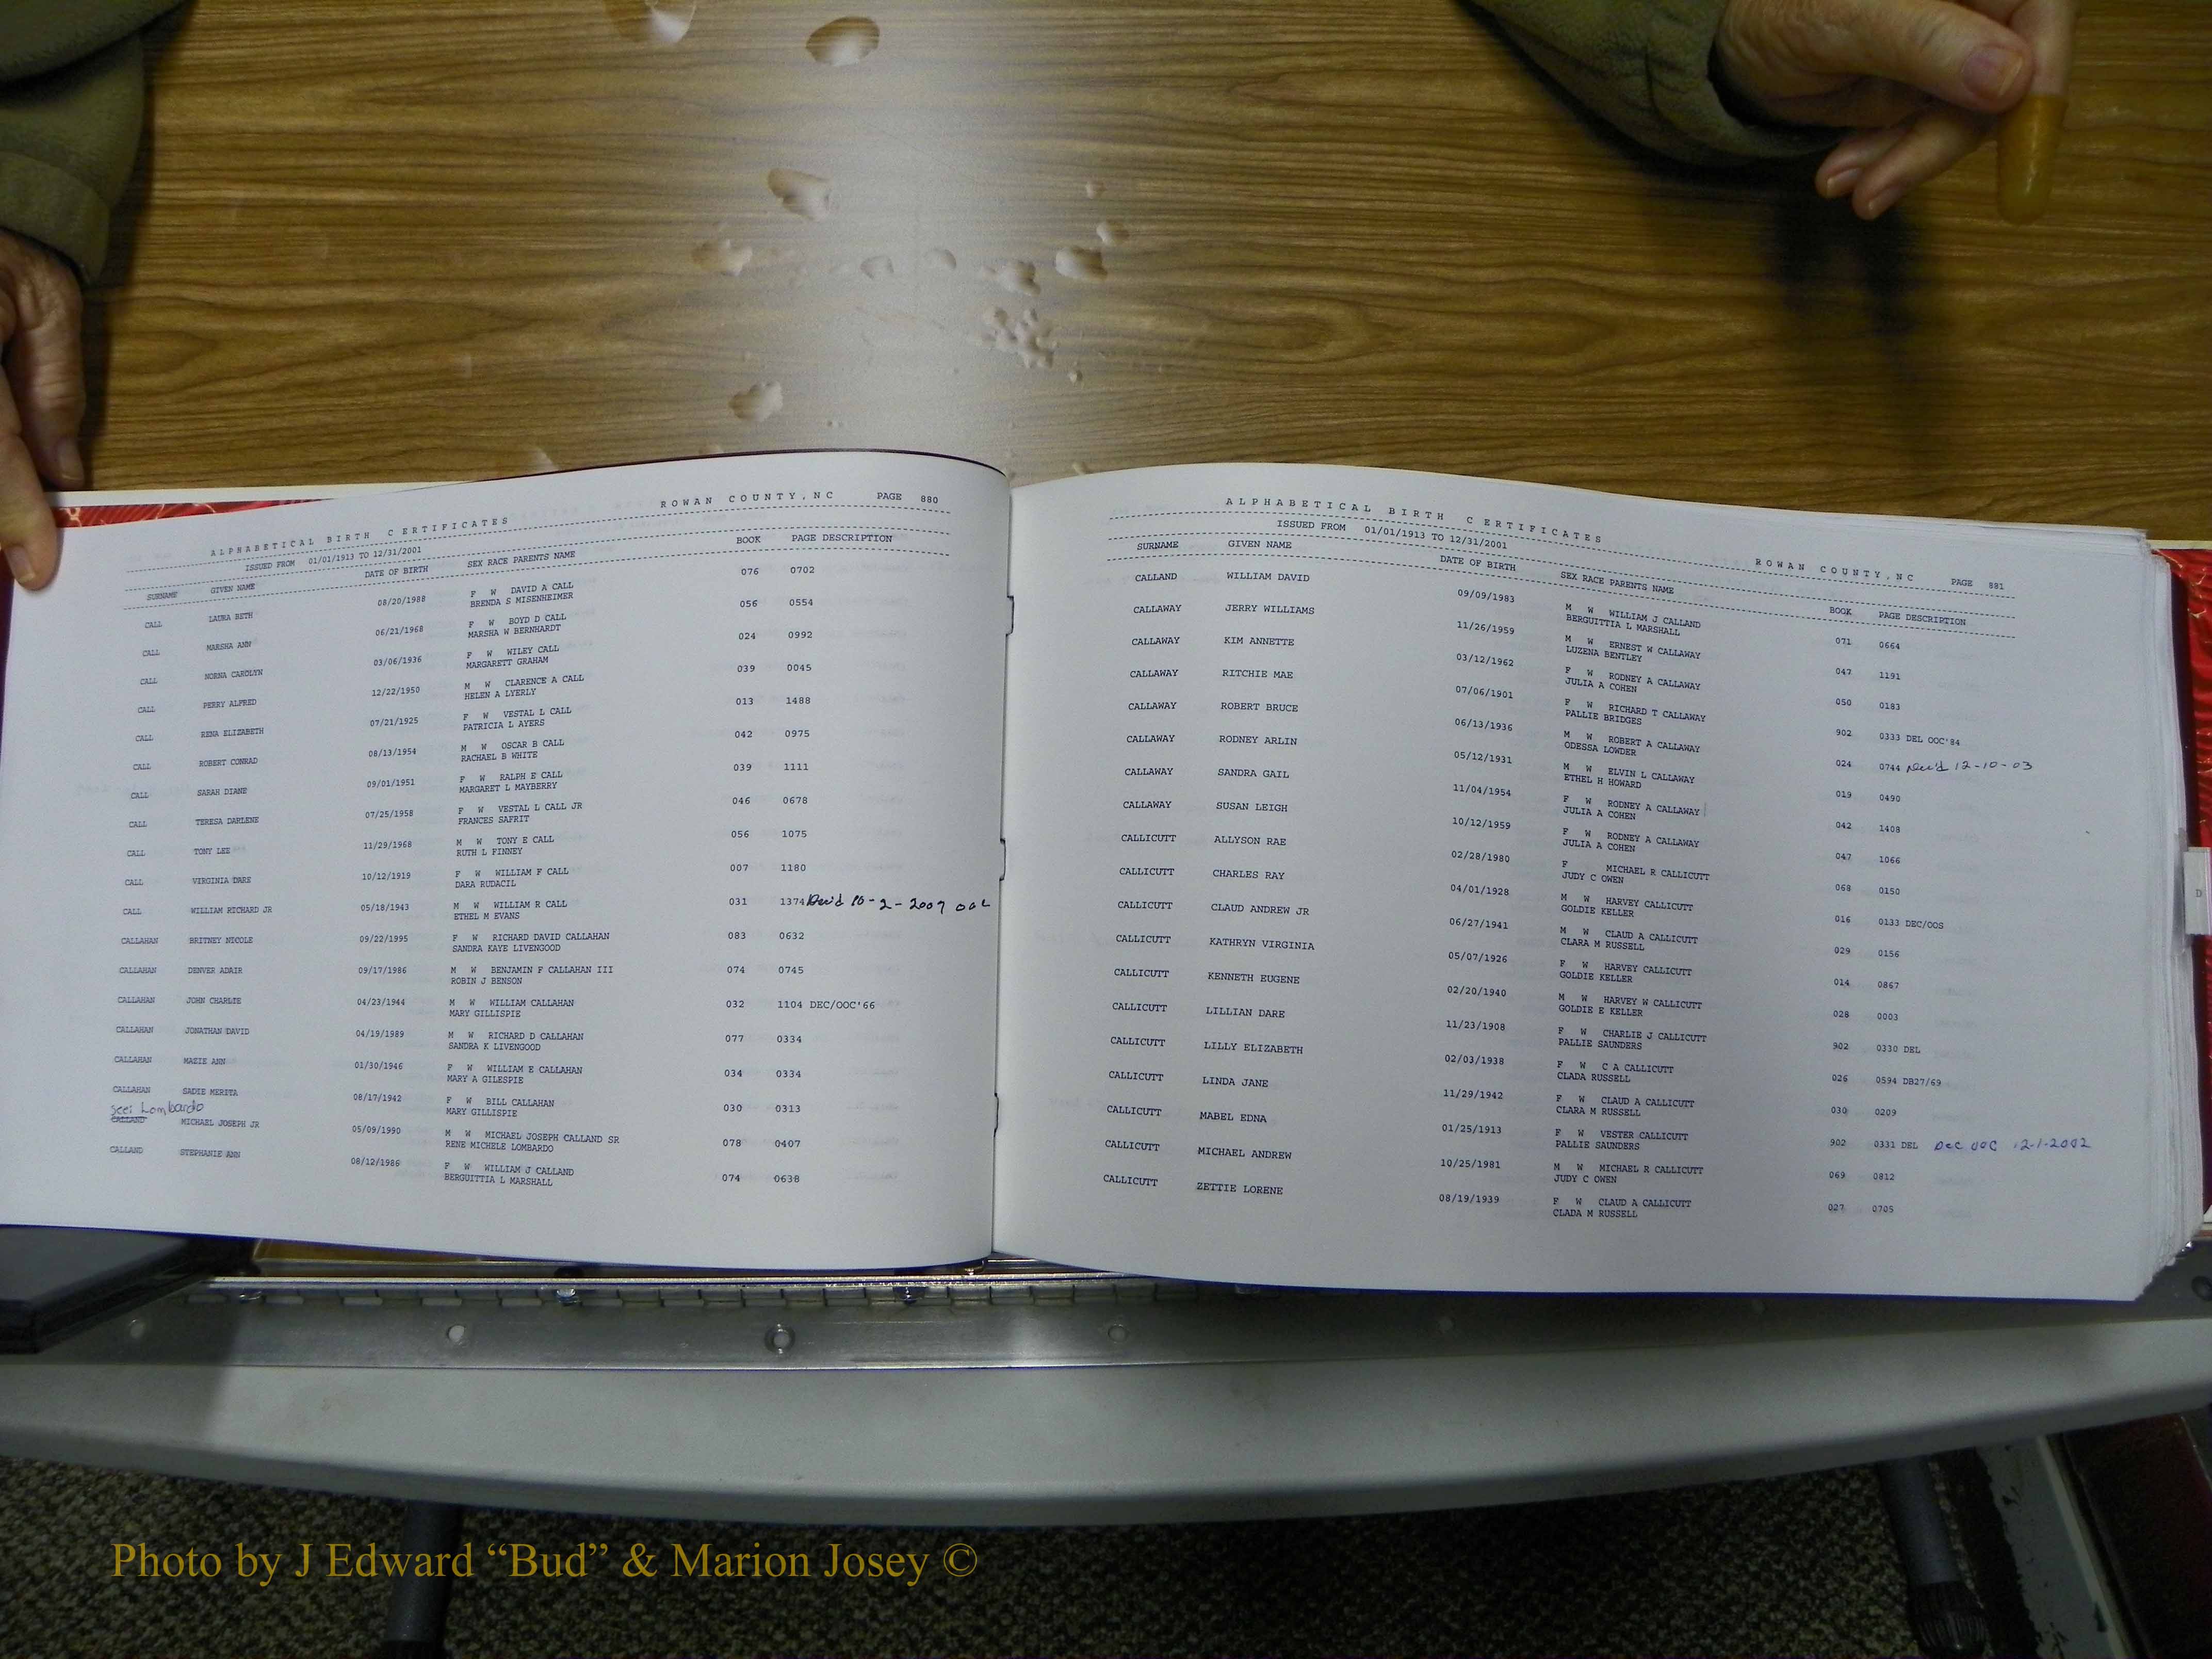 ALPHABETICAL BIRTH CERTIFICATES ROWAN COUNTY, NC PAGE 880
ISSUED FROM 01/01/1913 TO 12/31/2001
SURNAME GIVEN NAME DATE OF BIRTH SEX RACE PARENTS NAME BOOK PAGE DESCRIPTION
CALL LAURA BETH 08/20/1988 F W DAVID A CALL 076 0702
BRENDA S MISENHEIMER
CALL MARSHA ANN 06/21/1968 F W BOYD D CALL 056 0554
MARSHA W BERNHARDT
CALL NORNA CAROLYN 03/06/1936 F W WILEY CALL 024 0992
MARGARETT GRAHAM
CALL PERRY ALFRED 12/22/1950 M W CLARENCE A CALL 039 0045
HELEN A LYERLY
CALL RENA ELIZABETH 07/21/1925 F W VESTAL L CALL 013 1488
PATRICIA L AYERS
CALL ROBERT CONRAD 08/13/1954 M W OSCAR B CALL 042 0975
RACHAEL B WHITE
CALL SARAH DIANE 09/01/1951 F W RALPH E CALL 039 1111
MARGARET L MAYBERRY
CALL TERESA DARLENE 07/25/1958 F W VESTAL L CALL JR 046 0678
FRANCES SAFRIT
CALL TONY LEE 11/29/1968 M W TONY E CALL 056 1075
RUTH L FINNEY
CALL VIRGINIA DARE 10/12/1919 F W WILLIAM F CALL 007 1180
DARA RUDACIL
CALL WILLIAM RICHARD JR 05/18/1943 M W WILLIAM R CALL 031 1374 Dec'd 10-2-2007 OOC
ETHEL M EVANS
CALLAHAN BRITNEY NICOLE 09/22/1995 F W RICHARD DAVID CALLAHAN 083 0632
SANDRA KAYE LIVENGOOD
CALLAHAN DENVER ADAIR 09/17/1986 M W BENJAMIN F CALLAHAN III 074 0745
ROBIN J BENSON
CALLAHAN JOHN CHARLIE 04/23/1944 M W WILLIAM CALLAHAN 032 1104 DEC/OOC'66
MARY GILLISPIE
CALLAHAN JONATHAN DAVID 04/19/1989 M W RICHARD D CALLAHAN 077 0334
SANDRA K LIVENGOOD
CALLAHAN MAZIE ANN 01/30/1946 F W WILLIAM E CALLAHAN 034 0334
MARY A GILESPIE
CALLAHAN SADIE MERITA 08/17/1942 F W BILL CALLAHAN 030 0313
MARY GILLISPIE
see: Lombardo
CALLAND MICHAEL JOSEPH JR 05/09/1990 M W MICHAEL JOSEPH CALLAND SR 078 0407
RENE MICHELE LOMBARDO
CALLAND STEPHANIE ANN 08/12/1986 F W WILLIAM J CALLAND 074 0638
BERGUITTIA L MARSHALL
ALPHABETICAL BIRTH CERTIFICATES ROWAN COUNTY, NC PAGE 881
ISSUED FROM 01/01/1913 TO 12/31/2001
SURNAME GIVEN NAME DATE OF BIRTH SEX RACE PARENTS NAME BOOK PAGE DESCRIPTION
CALLAND WILLIAM DAVID 09/09/1983 M W WILLIAM J CALLAND 071 0664
BERGUITTIA L MARSHALL
CALLAWAY JERRY WILLIAMS 11/26/1959 M W ERNEST W CALLAWAY 047 1191
LUZENA BENTLEY
CALLAWAY KIM ANNETTE 03/12/1962 F W RODNEY A CALLAWAY 050 0183
JULIA A COHEN
CALLAWAY RITCHIE MAE 07/06/1901 F W RICHARD T CALLAWAY 902 0333 DEL OOC'84
PALLIE BRIDGES
CALLAWAY ROBERT BRUCE 06/13/1936 M W ROBERT A CALLAWAY 024 0744 Dec'd 12-10-03
ODESSA LOWDER
CALLAWAY RODNEY ARLIN 05/12/1931 M W ELVIN L CALLAWAY 019 0490
ETHEL H HOWARD
CALLAWAY SANDRA GAIL 11/04/1954 F W RODNEY A CALLAWAY 042 1408
JULIA A COHEN
CALLAWAY SUSAN LEIGH 10/12/1959 F W RODNEY A CALLAWAY 047 1066
JULIA A COHEN
CALLICUTT ALLYSON RAE 02/28/1980 F MICHAEL R CALLICUTT 068 0150
JUDY C OWEN
CALLICUTT CHARLES RAY 04/01/1928 M W HARVEY CALLICUTT 016 0133 DEC/OOS
GOLDIE KELLER
CALLICUTT CLAUD ANDREW JR 06/27/1941 M W CLAUD A CALLICUTT 029 0156
CLARA M RUSSELL
CALLICUTT KATHRYN VIRGINIA 05/07/1926 F W HARVEY CALLICUTT 014 0867
GOLDIE KELLER
CALLICUTT KENNETH EUGENE 02/20/1940 M W HARVEY W CALLICUTT 028 0003
GOLDIE E KELLER
CALLICUTT LILLIAN DARE 11/23/1908 F W CHARLIE J CALLICUTT 902 0330 DEL
PALLIE SAUNDERS
CALLICUTT LILLY ELIZABETH 02/03/1938 F W C A CALLICUTT 026 0594 DB27/69
CLADA RUSSELL
CALLICUTT LINDA JANE 11/29/1942 F W CLAUD A CALLICUTT 030 0209
CLARA M RUSSELL
CALLICUTT MABEL EDNA 01/25/1913 F W VESTER CALLICUTT 902 0331 DEL Dec OOC 12-1-2002
PALLIE SAUNDERS
CALLICUTT MICHAEL ANDREW 10/25/1981 M W MICHAEL R CALLICUTT 069 0812
JUDY C OWEN
CALLICUTT ZETTIE LORENE 08/19/1939 F W CLAUD A CALLICUTT 027 0705
CLADA M RUSSELL
D
Photo by J Edward “Bud” & Marion Josey ©